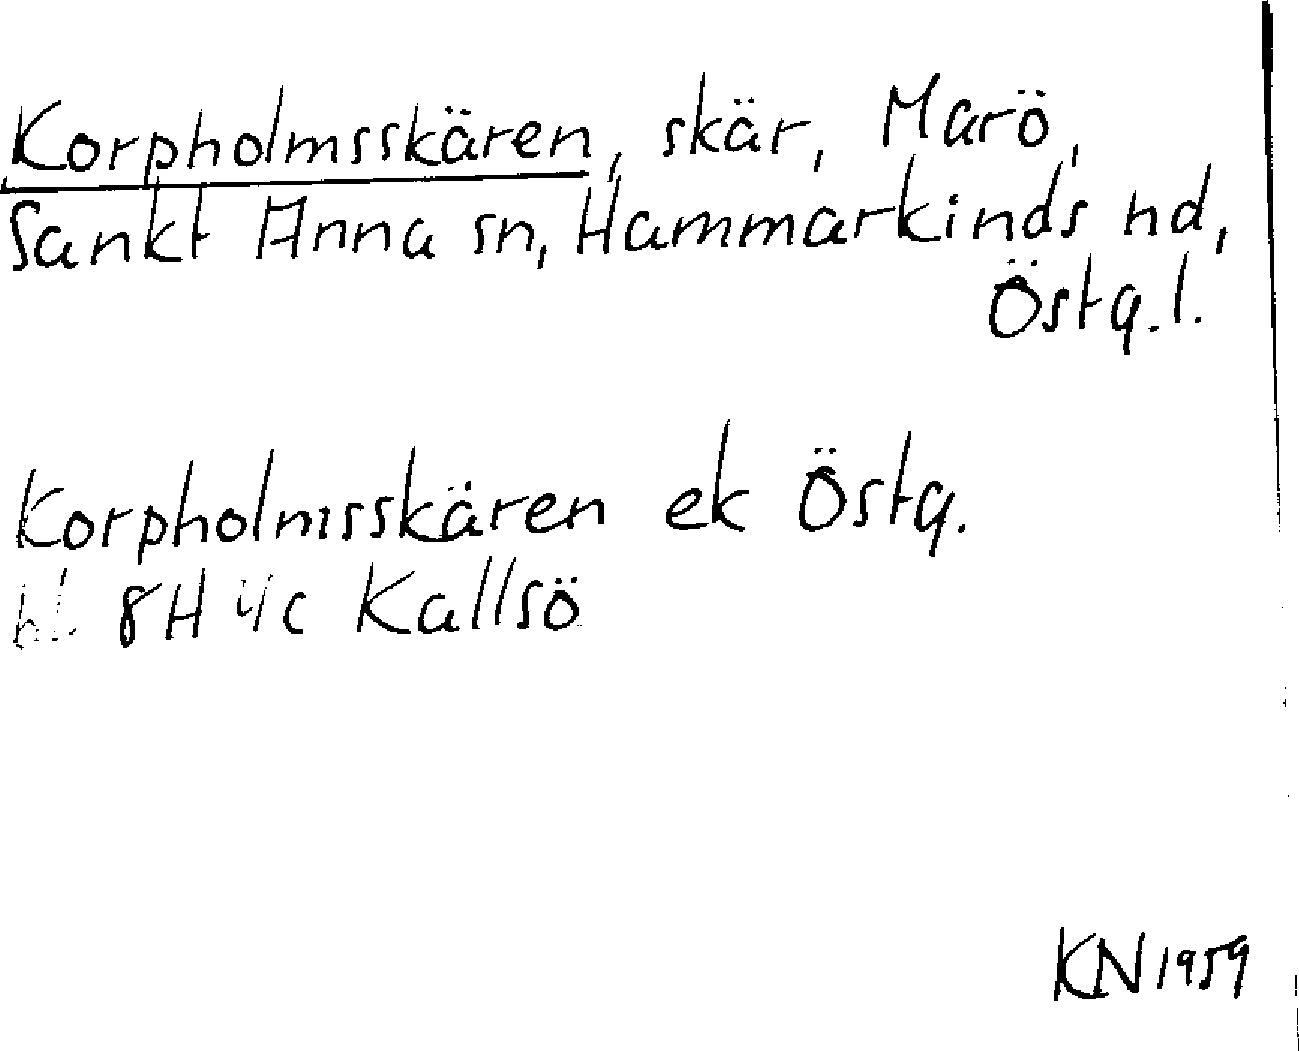 Korpholmsskären, skär, Marö,
Sankt Anna sn, Hammarkinds hd,
Östg. l.
Korpholmsskären ek Östg.
bl. 8H 4/c Kallsö
KN 1959